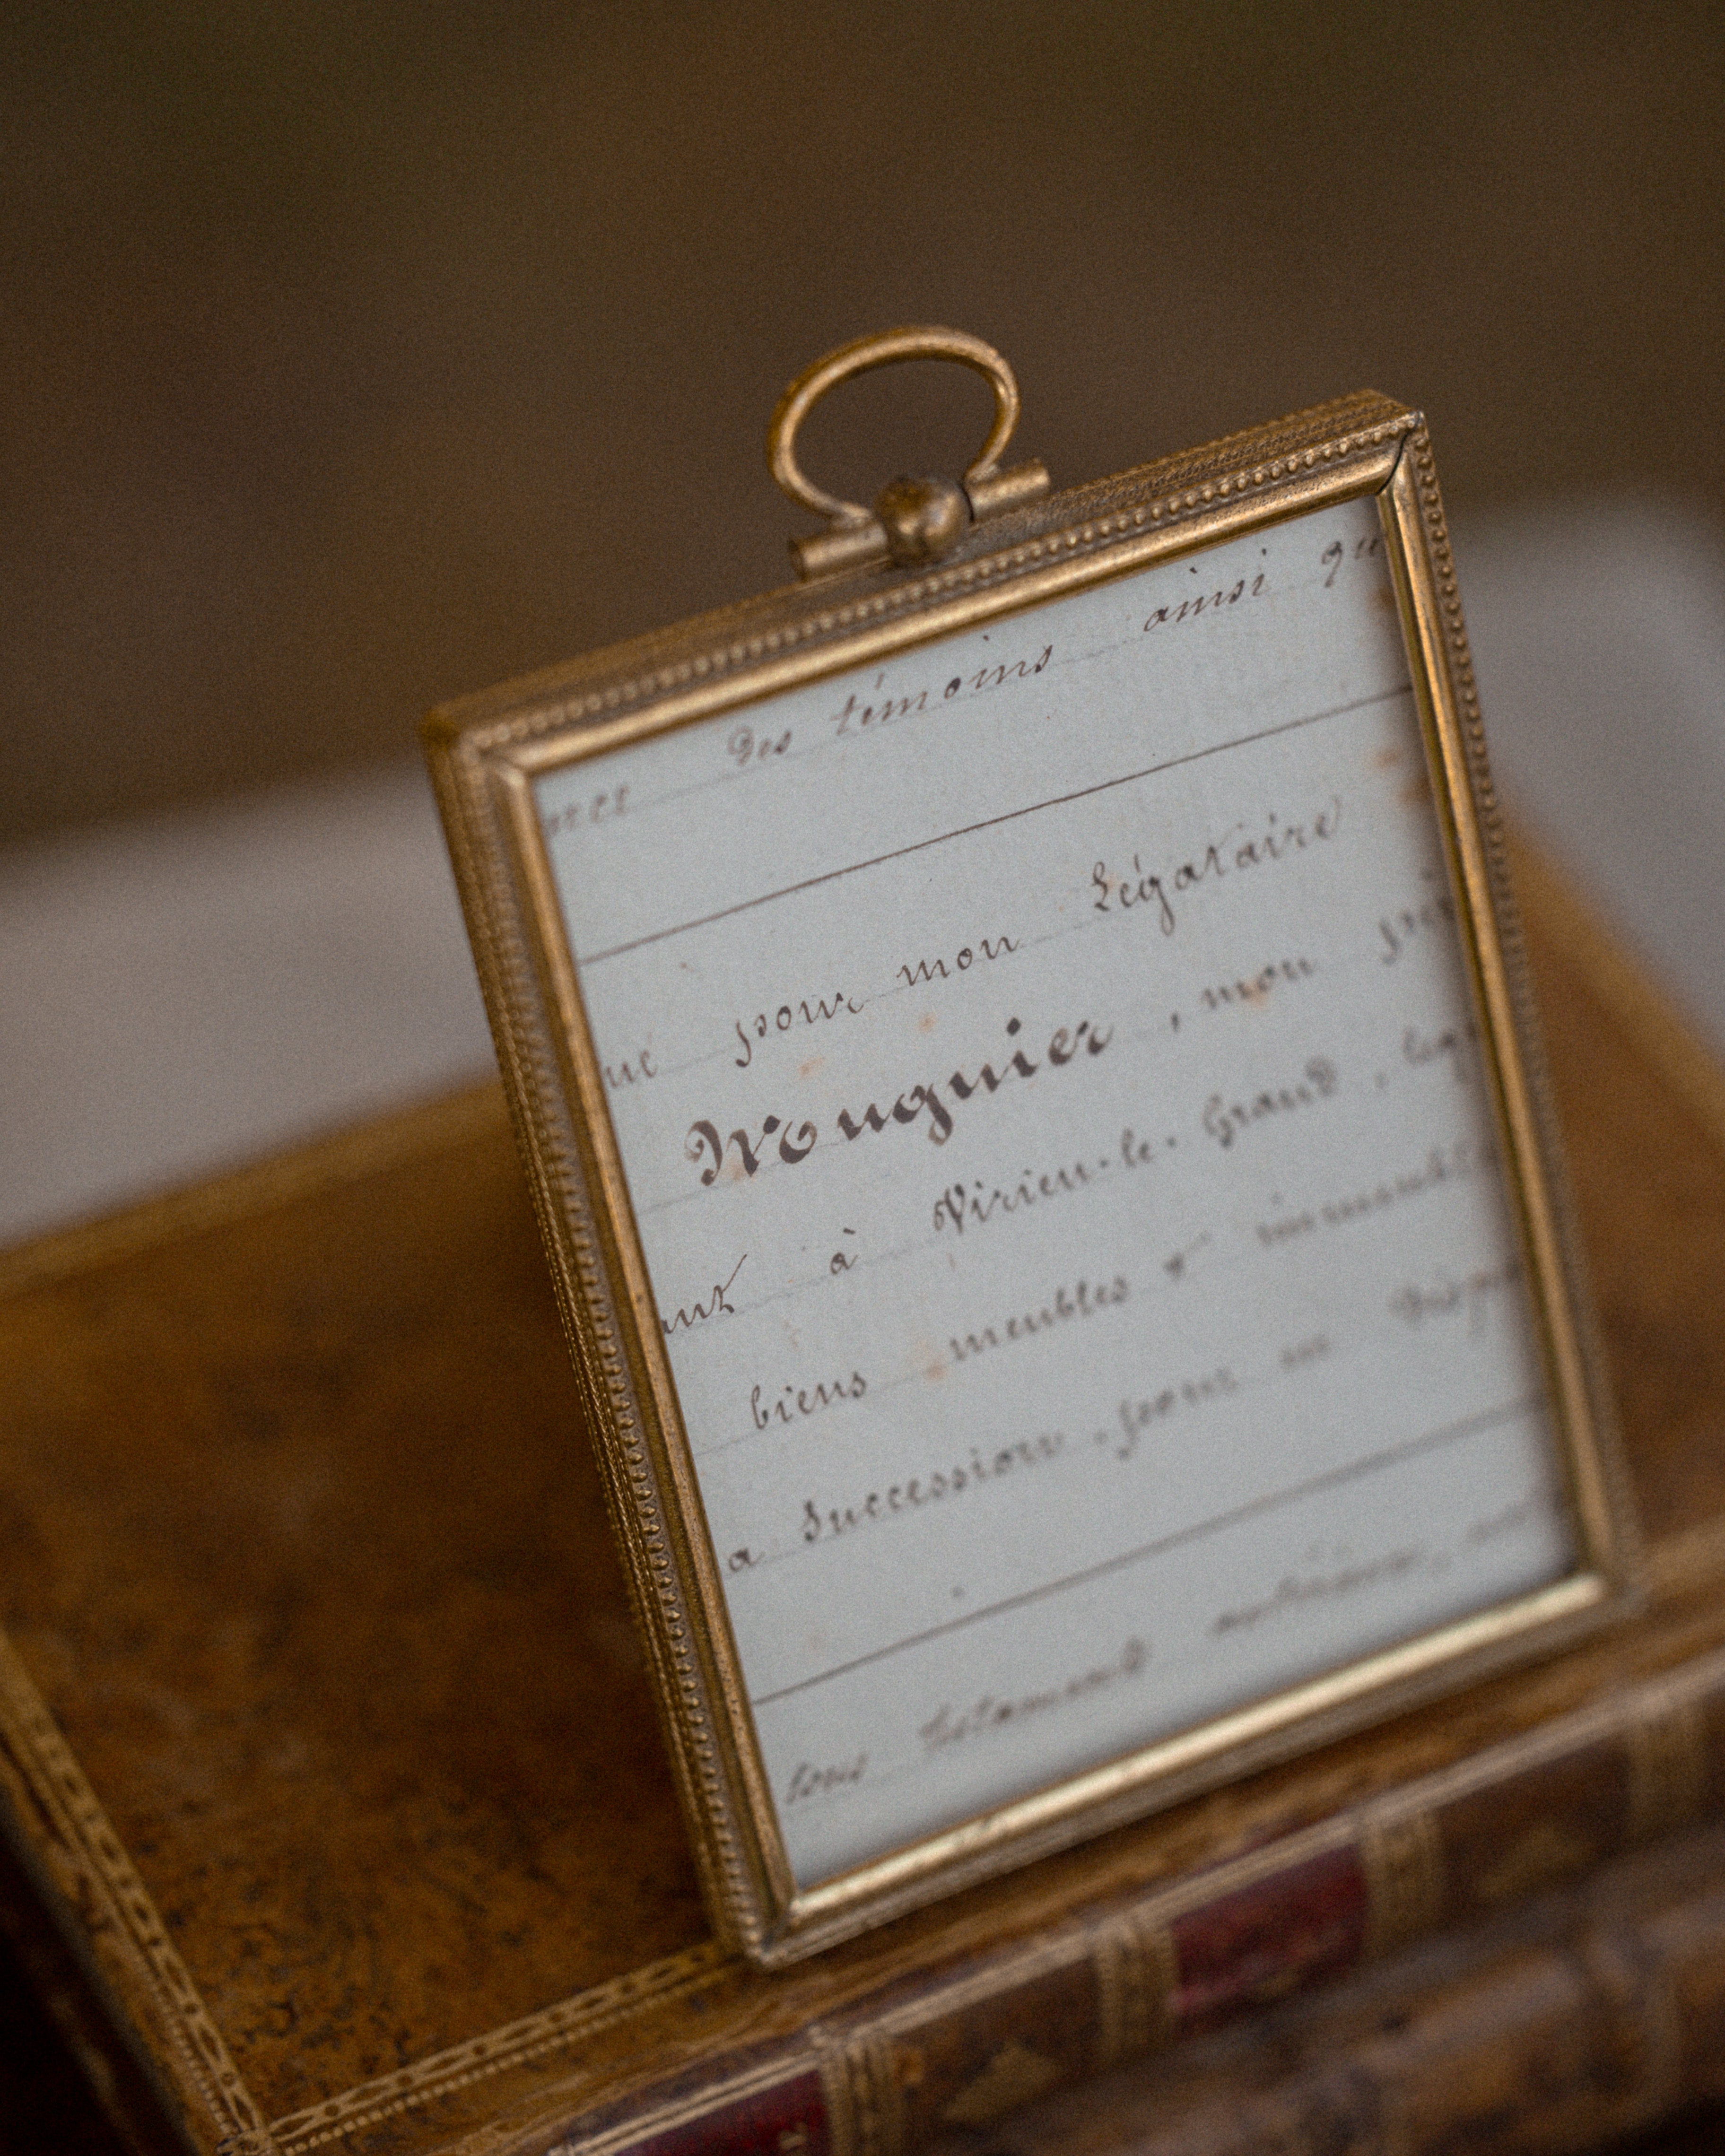 des témoins ainsi qu
pour mon Légataire
Mouguier, mon
ant à Virieu-le-Grand,
biens meubles & immeubles
a Succession, pour en
tous testaments antérieurs,